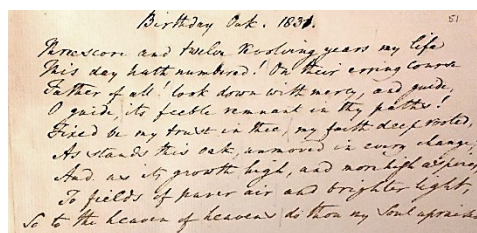 Birthday Oak. 1831.
51
Threescore and twelve revolving years my life
This day hath numbered! On their erring course
Father of all! look down with mercy, and guide,
O guide, its feeble remnant in thy paths!
Fixed be my trust in thee, my faith deep rooted,
As stands this oak, unmoved in every change;
And as its growth high, and more high aspires,
To fields of purer air and brighter light,
So to the heaven of heavens do thou my soul upraise